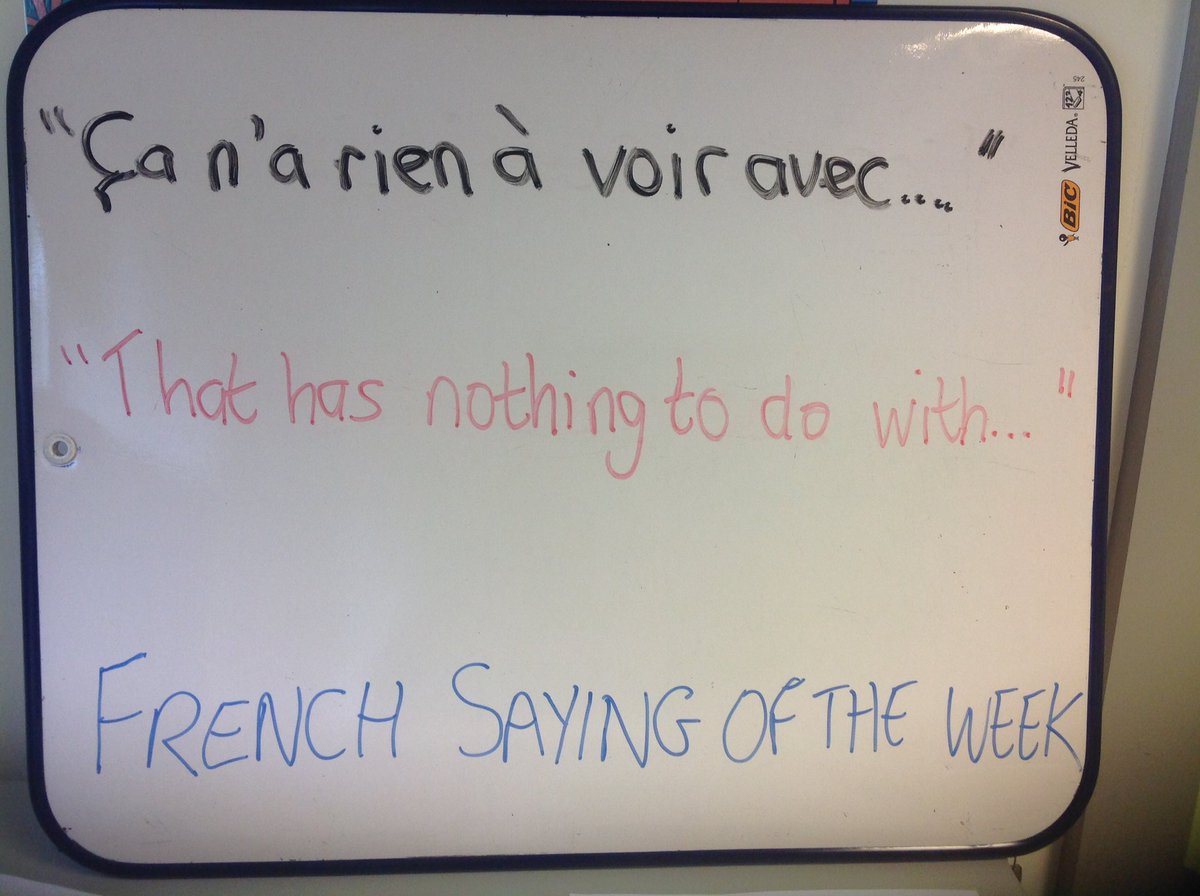 "Ça n'a rien à voir avec...."
"That has nothing to do with..."
FRENCH SAYING OF THE WEEK
BIC VELLEDA®
245